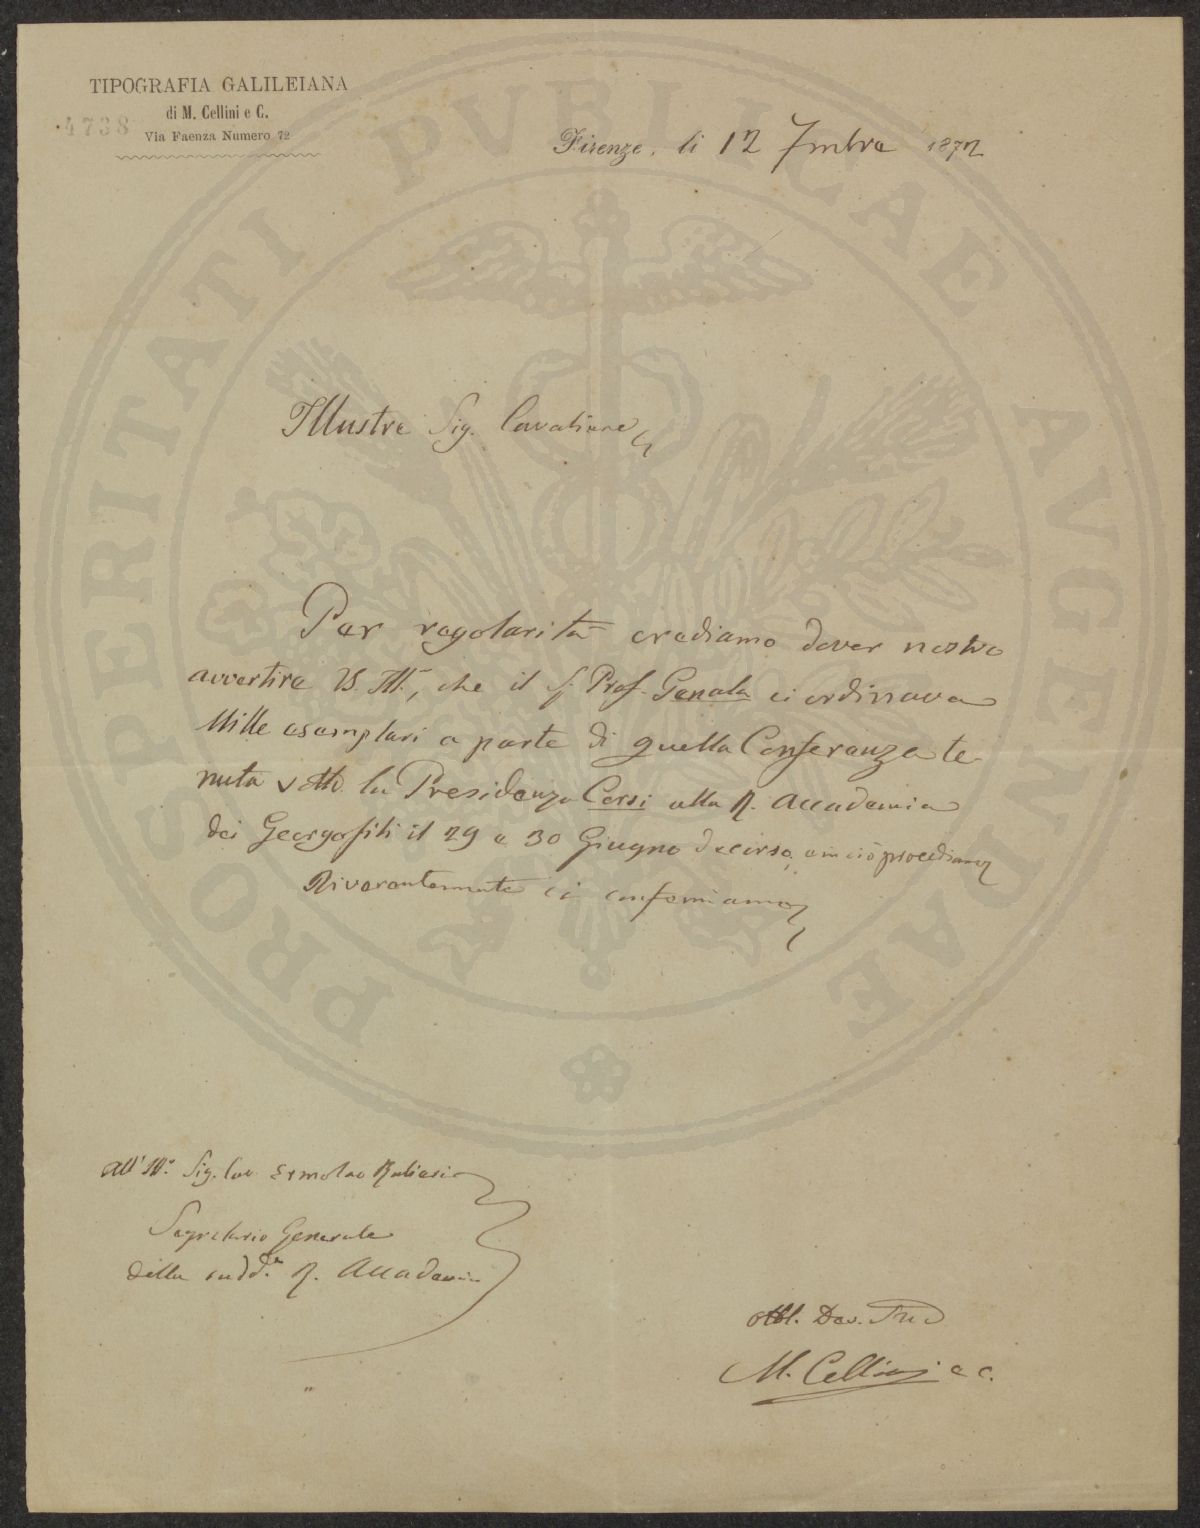 TIPOGRAFIA GALILEIANA
di M. Cellini e C.
Via Faenza Numero 72
4738
Firenze, li 12 7mbre 1872
Illustre Sig. Cavaliere
Per regolarità crediamo dover nostro
avvertire V. Ill., che il S. Prof. Genala ci ordinava
Mille esemplari a parte di quella Conferenza te-
nuta sotto la Presidenza Corsi alla R. Accademia
dei Georgofili il 29 e 30 Giugno decorso, e in ciò procediamo
Riverentemente ci confermiamo
All' Ill.º Sig. Cav. Ermolao Rubieri
Segretario Generale
della sudd.ta R. Accademia
Obbl. Dev.
M. Cellini e C.
PROSPERITATI PVBLICAE AVGENDAE